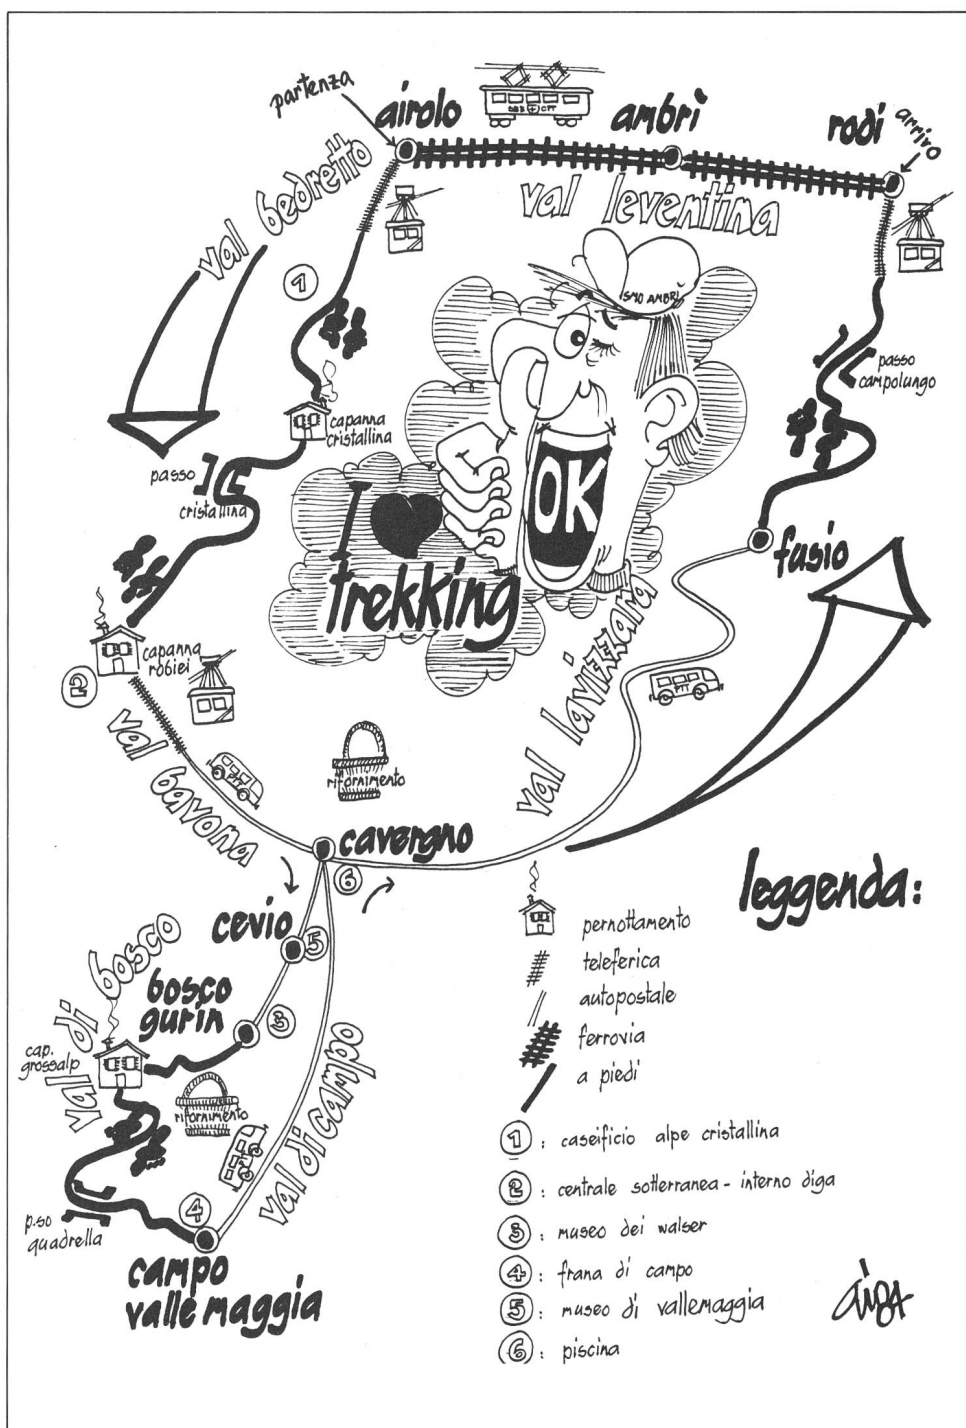 partenza
airolo
SBB CFF
ambrì
rodi
arrivo
val bedretto
val leventina
1
SMO AMBRÌ
passo
campolungo
capanna
cristallina
passo
cristallina
OK
I
trekking
fusio
capanna
robiei
2
val lavizzara
PTT
val bavona
PTT
rifornimento
cavergno
6
leggenda:
cevio
5
val di bosco
bosco
gurin
3
cap.
grossalp
rifornimento
val di campo
4
p.so
quadrella
campo
valle maggia
pernottamento
teleferica
autopostale
ferrovia
a piedi
1 : caseificio alpe cristallina
2 : centrale sotterranea - interno diga
3 : museo dei walser
4 : frana di campo
5 : museo di vallemaggia
6 : piscina